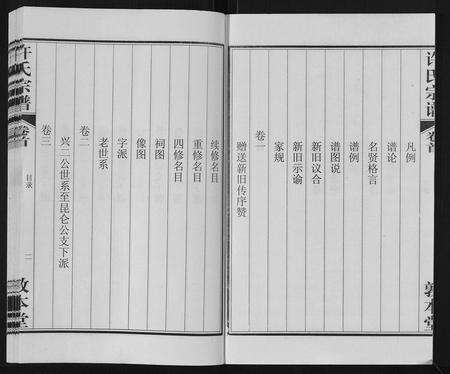 许氏宗谱
卷首
敦本堂
凡例
谱论
名贤格言
谱例
谱图说
新旧议合
新旧示谕
家规
卷一
赠送新旧传序赞
续修名目
重修名目
四修名目
祠图
像图
字派
老世系
卷二
兴三公世系至昆仑公支下派
卷三
许氏宗谱
卷首
目录
二
敦本堂